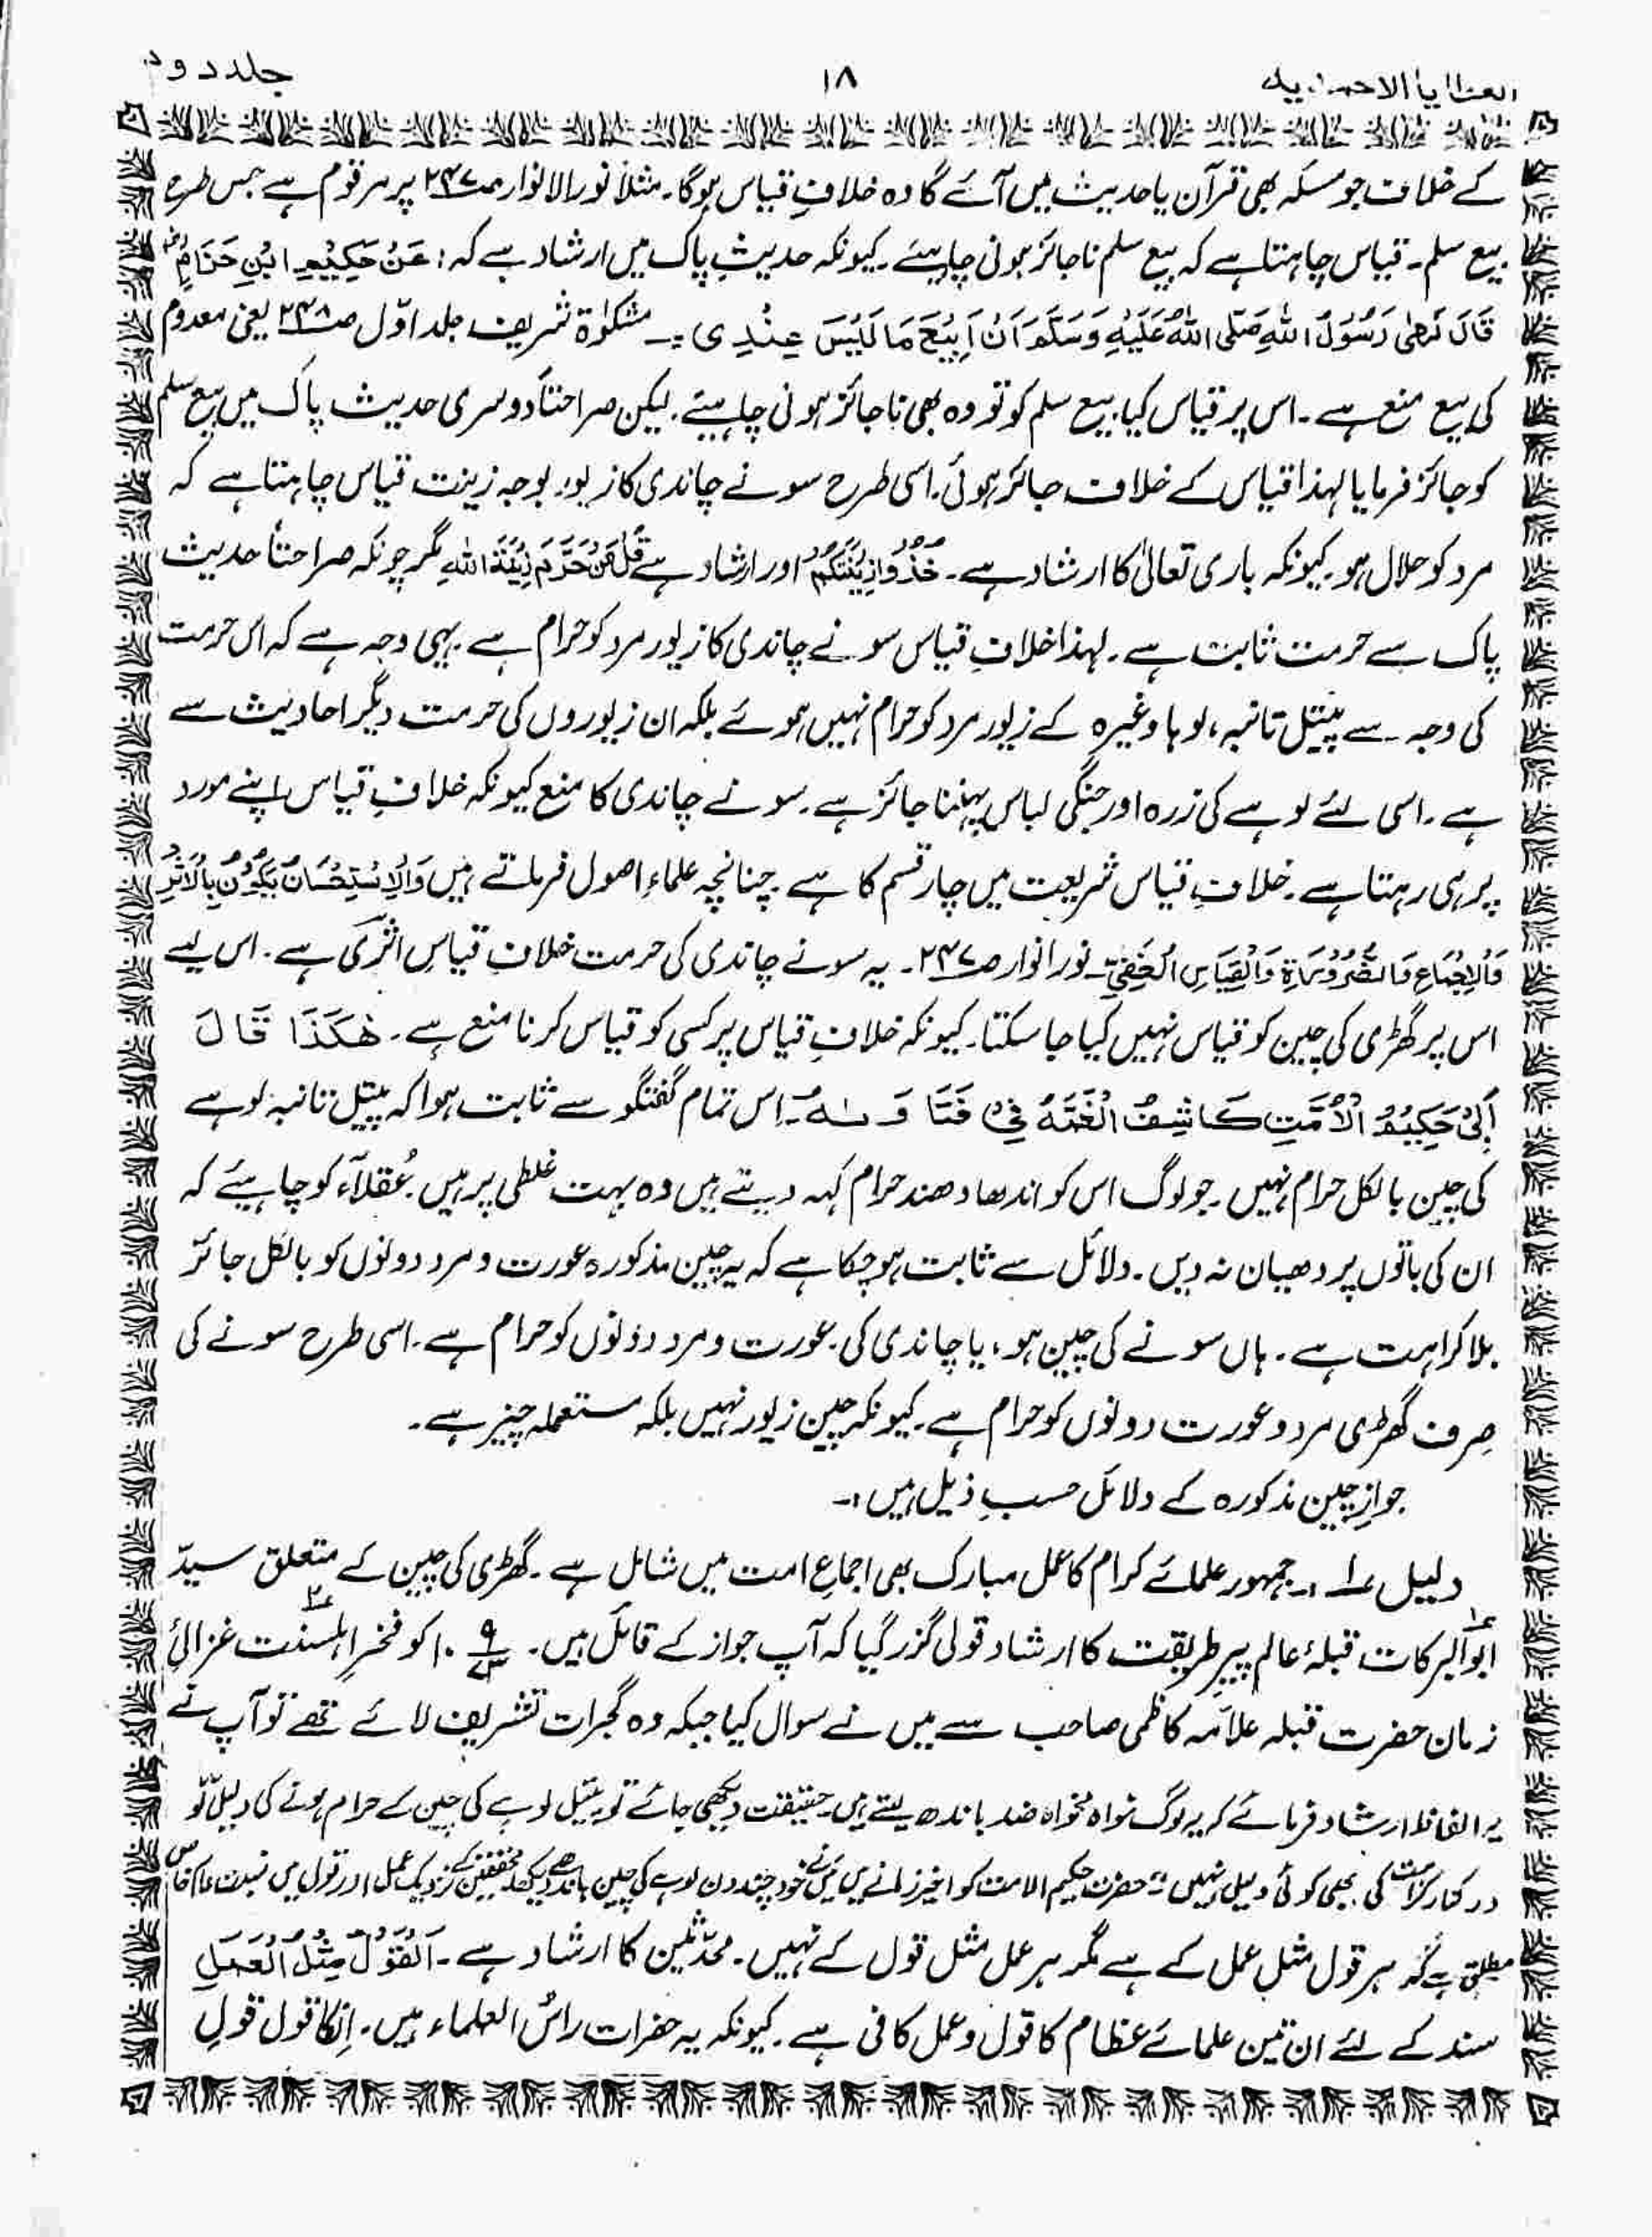 العطایا الاحمدیہ ۱۸ جلد دوم
کے خلاف جو مسئلہ بھی قرآن یا حدیث میں آئے گا وہ خلافِ قیاس ہوگا۔ مثلاً نور الانوار صـ۲۴۷ پر مرقوم ہے جس طرح
بیع سلم۔ قیاس چاہتا ہے کہ بیع سلم ناجائز ہونی چاہیئے۔ کیونکہ حدیثِ پاک میں ارشاد ہے کہ: عَنْ حَکِیْمِ ابْنِ حَزَامٍ
قَالَ نَھٰی رَسُوْلُ اللہِ صَلَّی اللہُ عَلَیْہِ وَسَلَّمَ اَنْ اَبِیْعَ مَا لَیْسَ عِنْدِی ۔ مشکوٰۃ شریف جلد اوّل صـ۲۴۸ یعنی معدوم
کی بیع منع ہے۔ اس پر قیاس کیا بیع سلم کو تو وہ بھی ناجائز ہونی چاہیئے۔ لیکن صراحتاً دوسری حدیث پاک میں بیع سلم
کو جائز فرمایا لہذا قیاس کے خلاف جائز ہوئی۔ اسی طرح سونے چاندی کا زیور بوجہ زینت قیاس چاہتا ہے کہ
مرد کو حلال ہو۔ کیونکہ باری تعالیٰ کا ارشاد ہے۔ خُذُوْا زِیْنَتَکُمْ اور ارشاد ہے قُلْ مَنْ حَرَّمَ زِیْنَۃَ اللہِ مگر چونکہ صراحتاً حدیث
پاک سے حرمت ثابت ہے۔ لہذا خلافِ قیاس سونے چاندی کا زیور مرد کو حرام ہے۔ یہی وجہ ہے کہ اس حرمت
کی وجہ سے پیتل تانبہ، لوہا وغیرہ کے زیور مرد کو حرام نہیں ہوئے بلکہ ان زیوروں کی حرمت دیگر احادیث سے
ہے۔ اسی لئے لوہے کی زرہ اور جنگی لباس پہننا جائز ہے۔ سونے چاندی کا منع کیونکہ خلافِ قیاس اپنے مورد
پر ہی رہتا ہے۔ خلافِ قیاس شریعت میں چار قسم کا ہے۔ چنانچہ علماءِ اصول فرماتے ہیں وَالْاِسْتِحْسَانُ یَکُوْنُ بِالْاَثَرِ
وَالْاِجْمَاعِ وَالضَّرُوْرَۃِ وَالْقِیَاسِ الْخَفِیِّ۔ نور انوار صـ۲۴۷۔ یہ سونے چاندی کی حرمت خلافِ قیاسِ اثر کی ہے۔ اس لیے
اس پر گھڑی کی چین کو قیاس نہیں کیا جا سکتا۔ کیونکہ خلافِ قیاس پر کسی کو قیاس کرنا منع ہے۔ ھٰکَذَا قَالَ
اَبِیْ حَکِیْمُ الْاُمَّتِ کَاشِفُ الْغَمَّہُ فِیْ فَتَاوٰہُ۔ اس تمام گفتگو سے ثابت ہوا کہ پیتل تانبہ لوہے
کی چین بالکل حرام نہیں۔ جو لوگ اس کو اندھا دھند حرام کہہ دیتے ہیں وہ بہت غلطی پر ہیں۔ عُقلاءَ کو چاہیئے کہ
ان کی باتوں پر دھیان نہ دیں۔ دلائل سے ثابت ہو چکا ہے کہ یہ چین مذکورہ عورت و مرد دونوں کو بالکل جائز
بلا کراہت ہے۔ ہاں سونے کی چین ہو، یا چاندی کی۔ عورت و مرد دونوں کو حرام ہے۔ اسی طرح سونے کی
صِرف گھڑی مرد و عورت دونوں کو حرام ہے۔ کیونکہ چین زیور نہیں بلکہ مستعملہ چیز ہے۔
جوازِ چین مذکورہ کے دلائل حسبِ ذیل ہیں:۔
دلیل ۱؎:۔ جمہور علمائے کرام کا عمل مبارک بھی اجماعِ امت میں شامل ہے۔ گھڑی کی چین کے متعلق سیّد
ابوالبرکات قبلۂ عالم پیرِ طریقت کا ارشاد قولی گزر گیا کہ آپ جواز کے قائل ہیں۔ کو فخرِ اہلسنت غزالیٔ
زمان حضرت قبلہ علامہ کاظمی صاحب سے میں نے سوال کیا جبکہ وہ گجرات تشریف لائے تھے تو آپ نے
یہ الفاظ ارشاد فرمائے کہ یہ لوگ خواہ مخواہ ضد باندھ لیتے ہیں۔ حقیقت دیکھی جائے تو پیتل لوہے کی چین کے حرام ہونے کی دلیل تو
در کنار کراہت کی بھی کوئی دلیل نہیں۔ حضرت حکیم الامت کو اخیر زمانے میں مَیں نے خود چند دن لوہے کی چین باندھے دیکھا محققین کے نزدیک عمل اور قول میں نسبت عام خاص
مطلق ہے کہ ہر قول مثلِ عمل کے ہے مگر ہر عمل مثل قول کے نہیں۔ محدّثین کا ارشاد ہے۔ اَلْقَوْلُ مِثْلُ الْعَمَلِ
سند کے لئے ان تین علمائے عظام کا قول و عمل کافی ہے۔ کیونکہ یہ حضرات راسُ العلماء ہیں۔ اِنکا قول قولِ